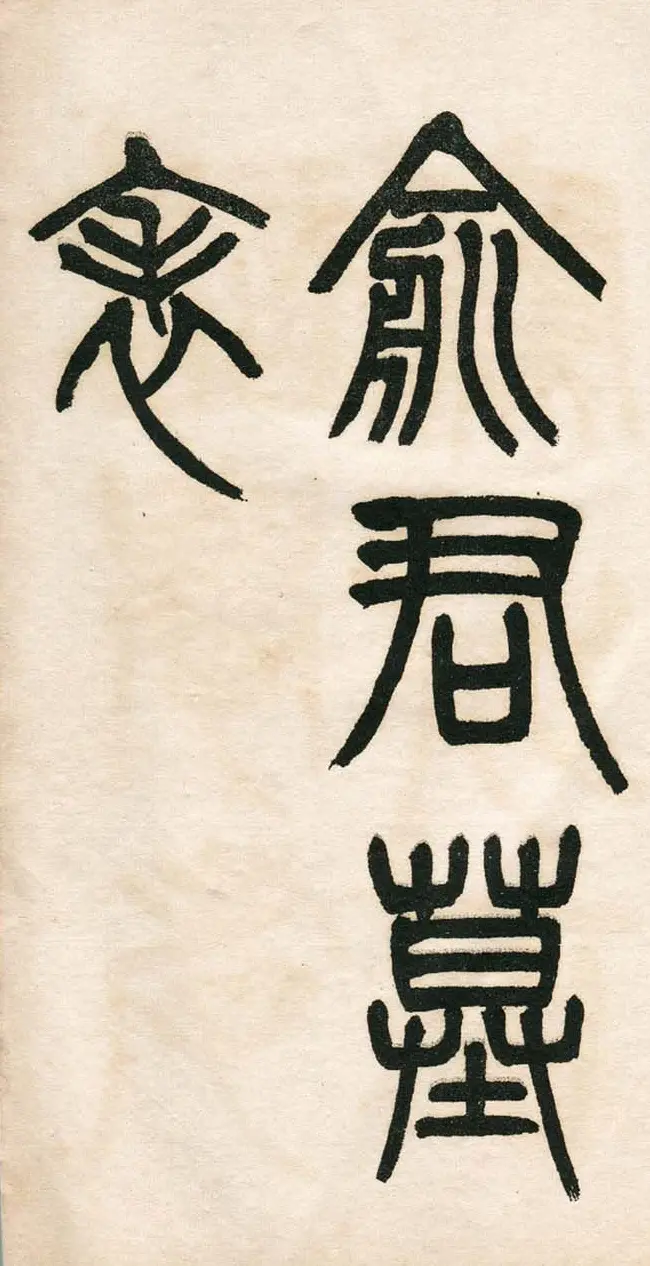 俞君墓
表